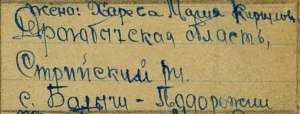 жена: Хареба Мария Кирилов
Дрогобычская область,
Стрийский рн.
с. Балычи - Подорожнии